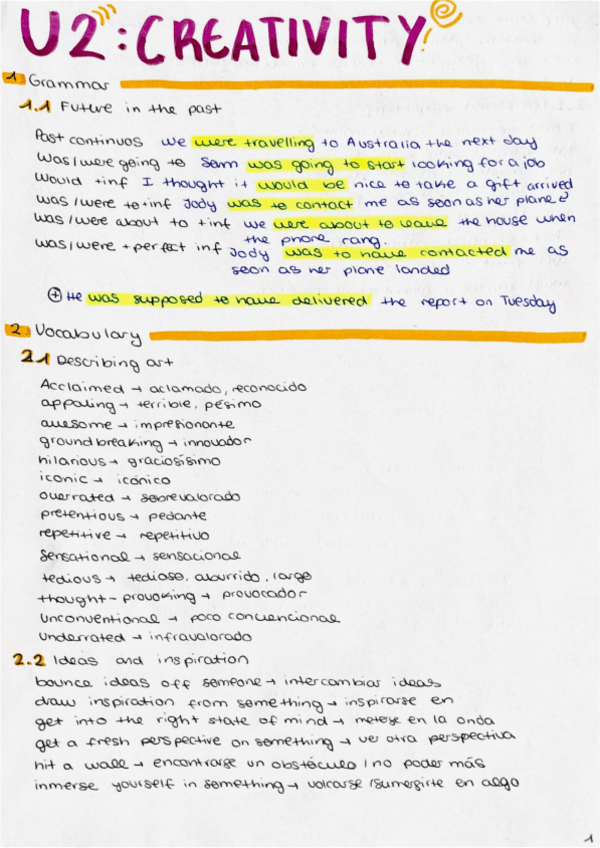 U2: CREATIVITY!
1 Grammar
1.1 Future in the past
Past continuos we were travelling to Australia the next day
was/were going to Sam was going to start looking for a job
Would + inf I thought it would be nice to take a gift arrived
was/were to + inf Jody was to contact me as soon as her plane
was/were about to + inf we were about to leave the house when
the phone rang.
was/were + perfect inf Jody was to have contacted me as
soon as her plane landed
+ He was supposed to have delivered the report on Tuesday
2 Vocabulary
2.1 Describing art
Acclaimed → aclamado, reconocido
appaling → terrible, pésimo
awesome → impresionante
groundbreaking → innovador
hilarious → graciosísimo
iconic → icónico
overrated → sobrevalorado
pretentious → pedante
repetitive → repetitivo
Sensational → sensacional
tedious → tedioso, aburrido, largo
thought-provoking → provocador
Unconventional → poco convencional
Underrated → infravalorado
2.2 Ideas and inspiration
bounce ideas off someone → intercambiar ideas
draw inspiration from something → inspirarse en
get into the right state of mind → meterse en la onda
get a fresh perspective on something → ver otra perspectiva
hit a wall → encontrarse un obstáculo / no poder más
inmerse yourself in something → volcarse / sumergirte en algo
1